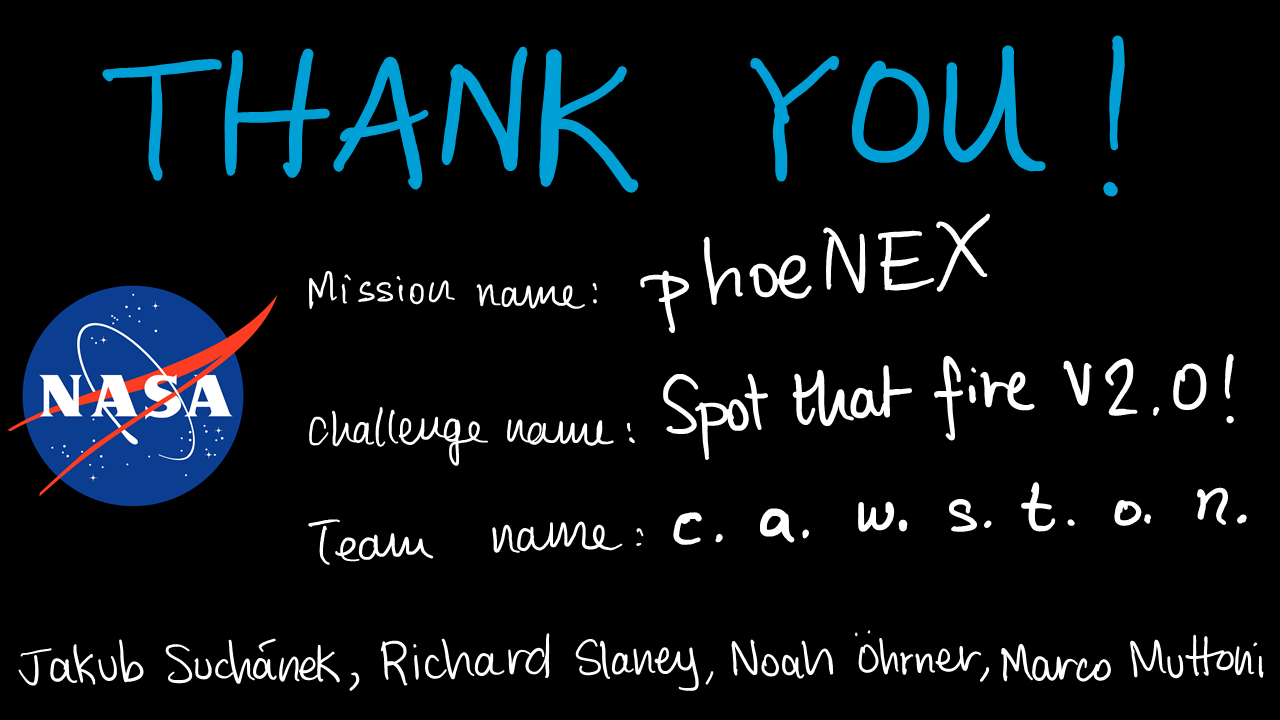 THANK YOU!
Mission name: phoeNEX
NASA
Challenge name: Spot that fire V2.0!
Team name: c. a. w. s. t. o. n.
Jakub Suchánek, Richard Slaney, Noah Öhrner, Marco Muttoni